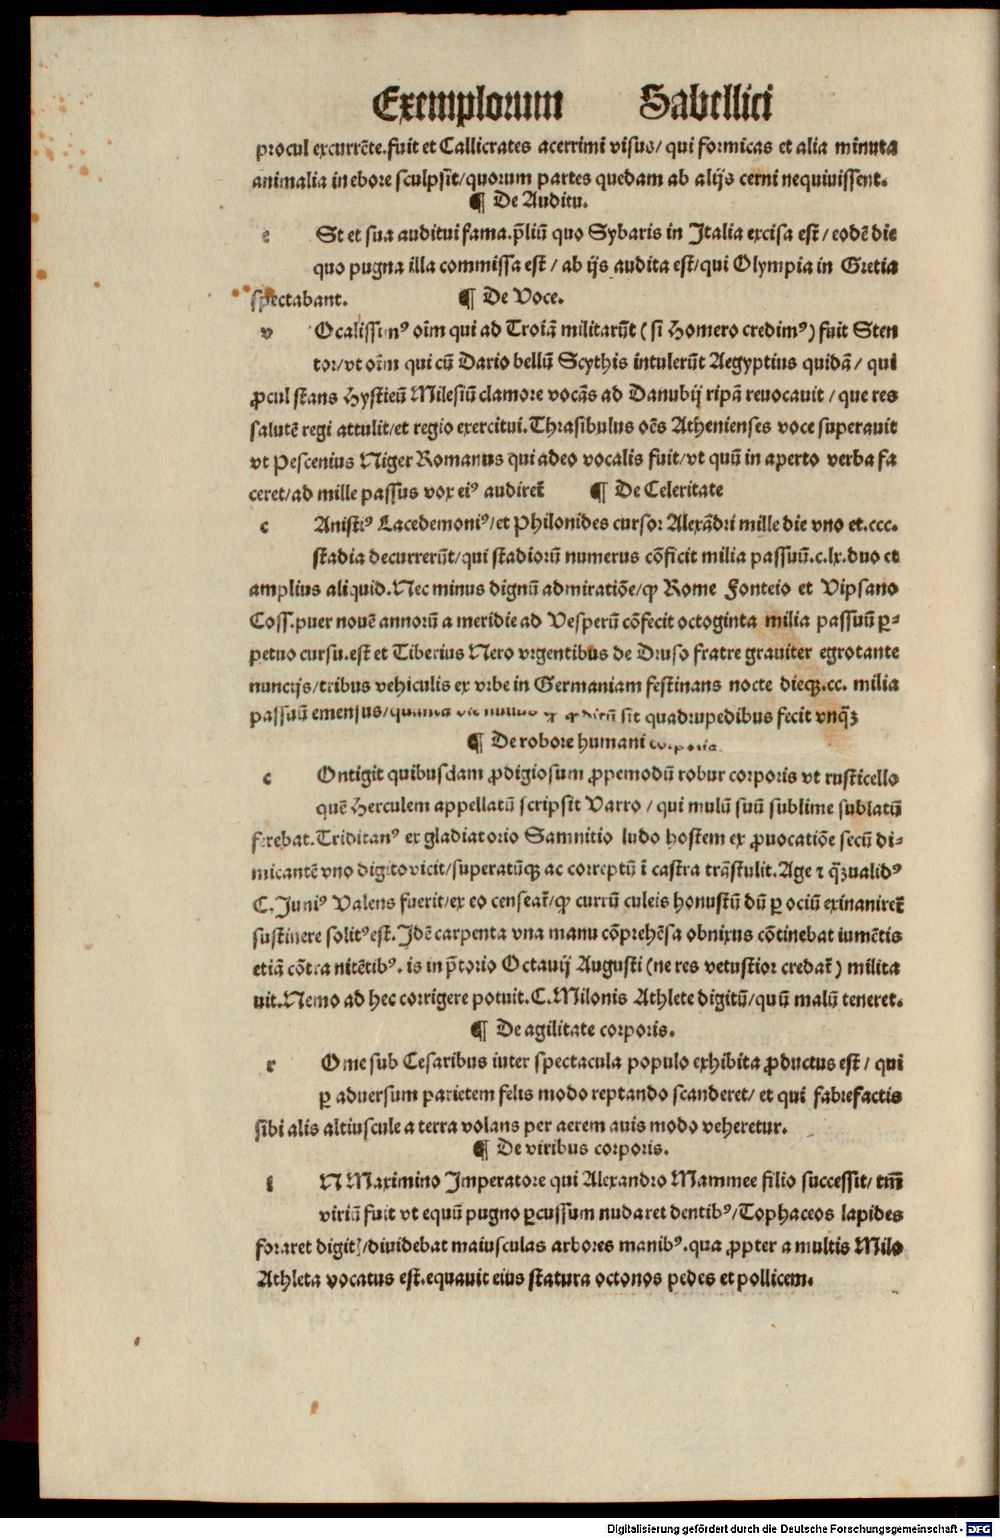 Exemplorum Sabellici
procul excurrēte.fuit et Callicrates acerrimi visus/ qui formicas et alia minuta
animalia in ebore sculpsit/quorum partes quedam ab alijs cerni nequiuissent.
¶ De Auditu.
e St et sua auditui fama.p̄liū quo Sybaris in Italia excisa est/ eodē die
quo pugna illa commissa est/ ab ijs audita est/qui Olympia in Gretia
spectabant. ¶ De Voce.
v Ocalissimꝰ oīm qui ad Troiā militarūt ( si Homero credimꝰ) fuit Sten
tor/vt oīm qui cū Dario bellū Scythis intulerūt Aegyptius quidā/ qui
ꝓcul stans Hystieū Milesiū clamore vocās ad Danubij ripā reuocauit/ que res
salutē regi attulit/et regio exercitui.Thrasibulus oēs Athenienses voce superauit
vt Pescenius Niger Romanus qui adeo vocalis fuit/vt quū in aperto verba fa
ceret/ad mille passus vox eiꝰ audiret̄ ¶ De Celeritate
c Anistiꝰ Lacedemoniꝰ/et Philonides cursor Alexādri mille die vno et.ccc.
stadia decurrerūt/qui stadiorū numerus cōficit milia passuū.c.lx.duo et
amplius aliquid.Nec minus dignū admiratiōe/ꝙ Rome Fonteio et Vipsano
Coss.puer nouē annorū a meridie ad Vesperū cōfecit octoginta milia passuū ꝑ-
petuo cursu.est et Tiberius Nero vrgentibus de Druso fratre grauiter egrotante
nuncijs/tribus vehiculis ex vrbe in Germaniam festinans nocte dieqꝫ.cc. milia
passuū emensus/ sit quadrupedibus fecit vnq̄ꝫ
¶ De robore humani corporis
c Ontigit quibusdam ꝓdigiosum ꝓpemodū robur corporis vt rusticello
quē Herculem appellatū scripsit Varro/ qui mulū suū sublime sublatū
ferebat.Triditanꝰ ex gladiatorio Samnitio ludo hostem ex ꝓuocatiōe secū di-
micantē vno digito vicit/superatūqꝫ ac correptū ī castra trāstulit.Age ⁊ q̄ꝫ validꝰ
C.Juniꝰ Valens fuerit/ex eo censeat̄/ꝙ currū culeis honustū dū ꝑ ociū exinaniret̄
sustinere solitꝰ est.Idē carpenta vna manu cōprehēsa obnixus cōtinebat iumētis
etiā cōtra nitētibꝰ. is in p̄torio Octauij Augusti (ne res vetustior credat̄) milita
uit.Nemo ad hec corrigere potuit.C.Milonis Athlete digitū/quū malū teneret.
¶ De agilitate corporis.
r Ome sub Cesaribus inter spectacula populo exhibita ꝓductus est/ qui
ꝑ aduersum parietem felis modo reptando scanderet/ et qui fabrefactis
sibi alis altiuscule a terra volans per aerem auis modo veheretur.
¶ De viribus corporis.
i N Maximino Imperatore qui Alexandro Mammee filio successit/ tm̄
viriū fuit vt equū pugno ꝑcussum nudaret dentibꝰ/Tophaceos lapides
foraret digitꝭ/diuidebat maiusculas arbores manibꝰ.qua ꝓpter a multis Milo
Athleta vocatus est.equauit eius statura octonos pedes et pollicem.
Digitalisierung gefördert durch die Deutsche Forschungsgemeinschaft - DFG